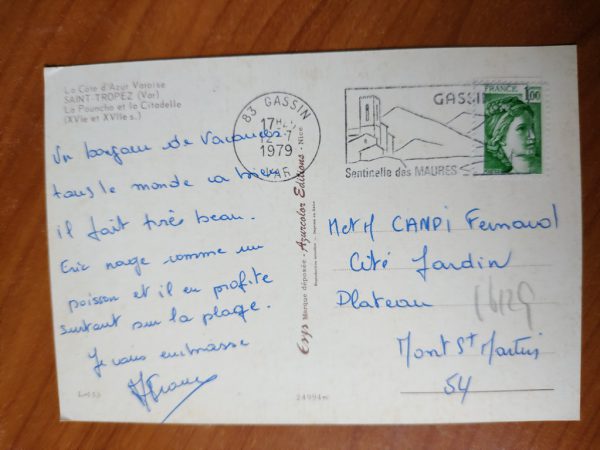 La Côte d'Azur Varoise
SAINT-TROPEZ (Var)
La Ponche et la Citadelle
(XVIe et XVIIe s.)
Un bonjour de Vacances
tous le monde va bien
il fait très beau.
Eric nage comme un
poisson et il en profite
surtout sur la plage.
Je vous embrasse
L-653
83 GASSIN
17H
12-7
1979
VAR
GASSIN
Sentinelle des MAURES
FRANCE
1,00
Esp Marque déposée - Azurcolor Editions - Nice
24994
Met M CANDI Fernand
Cité Jardin
Plateau
Mont St Martin
54